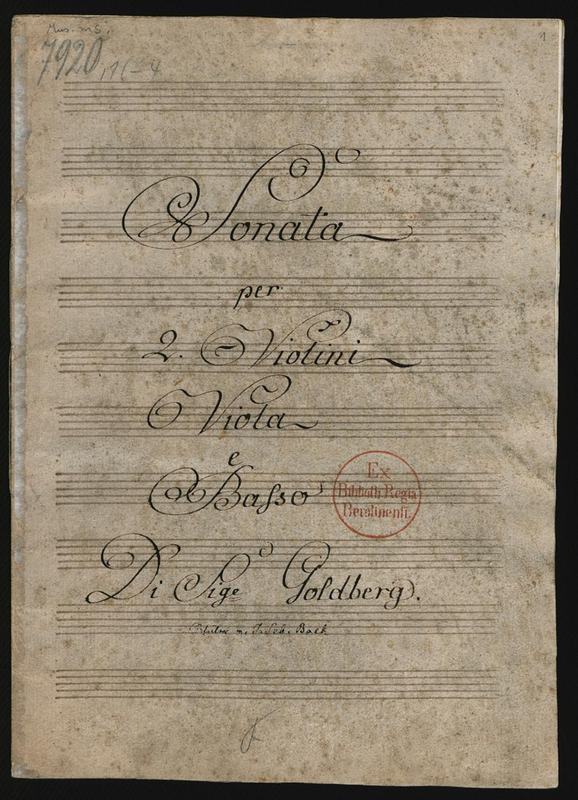 Mus. ms.
7920
1
Sonata
per
2. Violini
Viola
e
Basso
Ex
Biblioth. Regia
Berolinenſi.
Di Sige Goldberg.
J. Seb. Bach